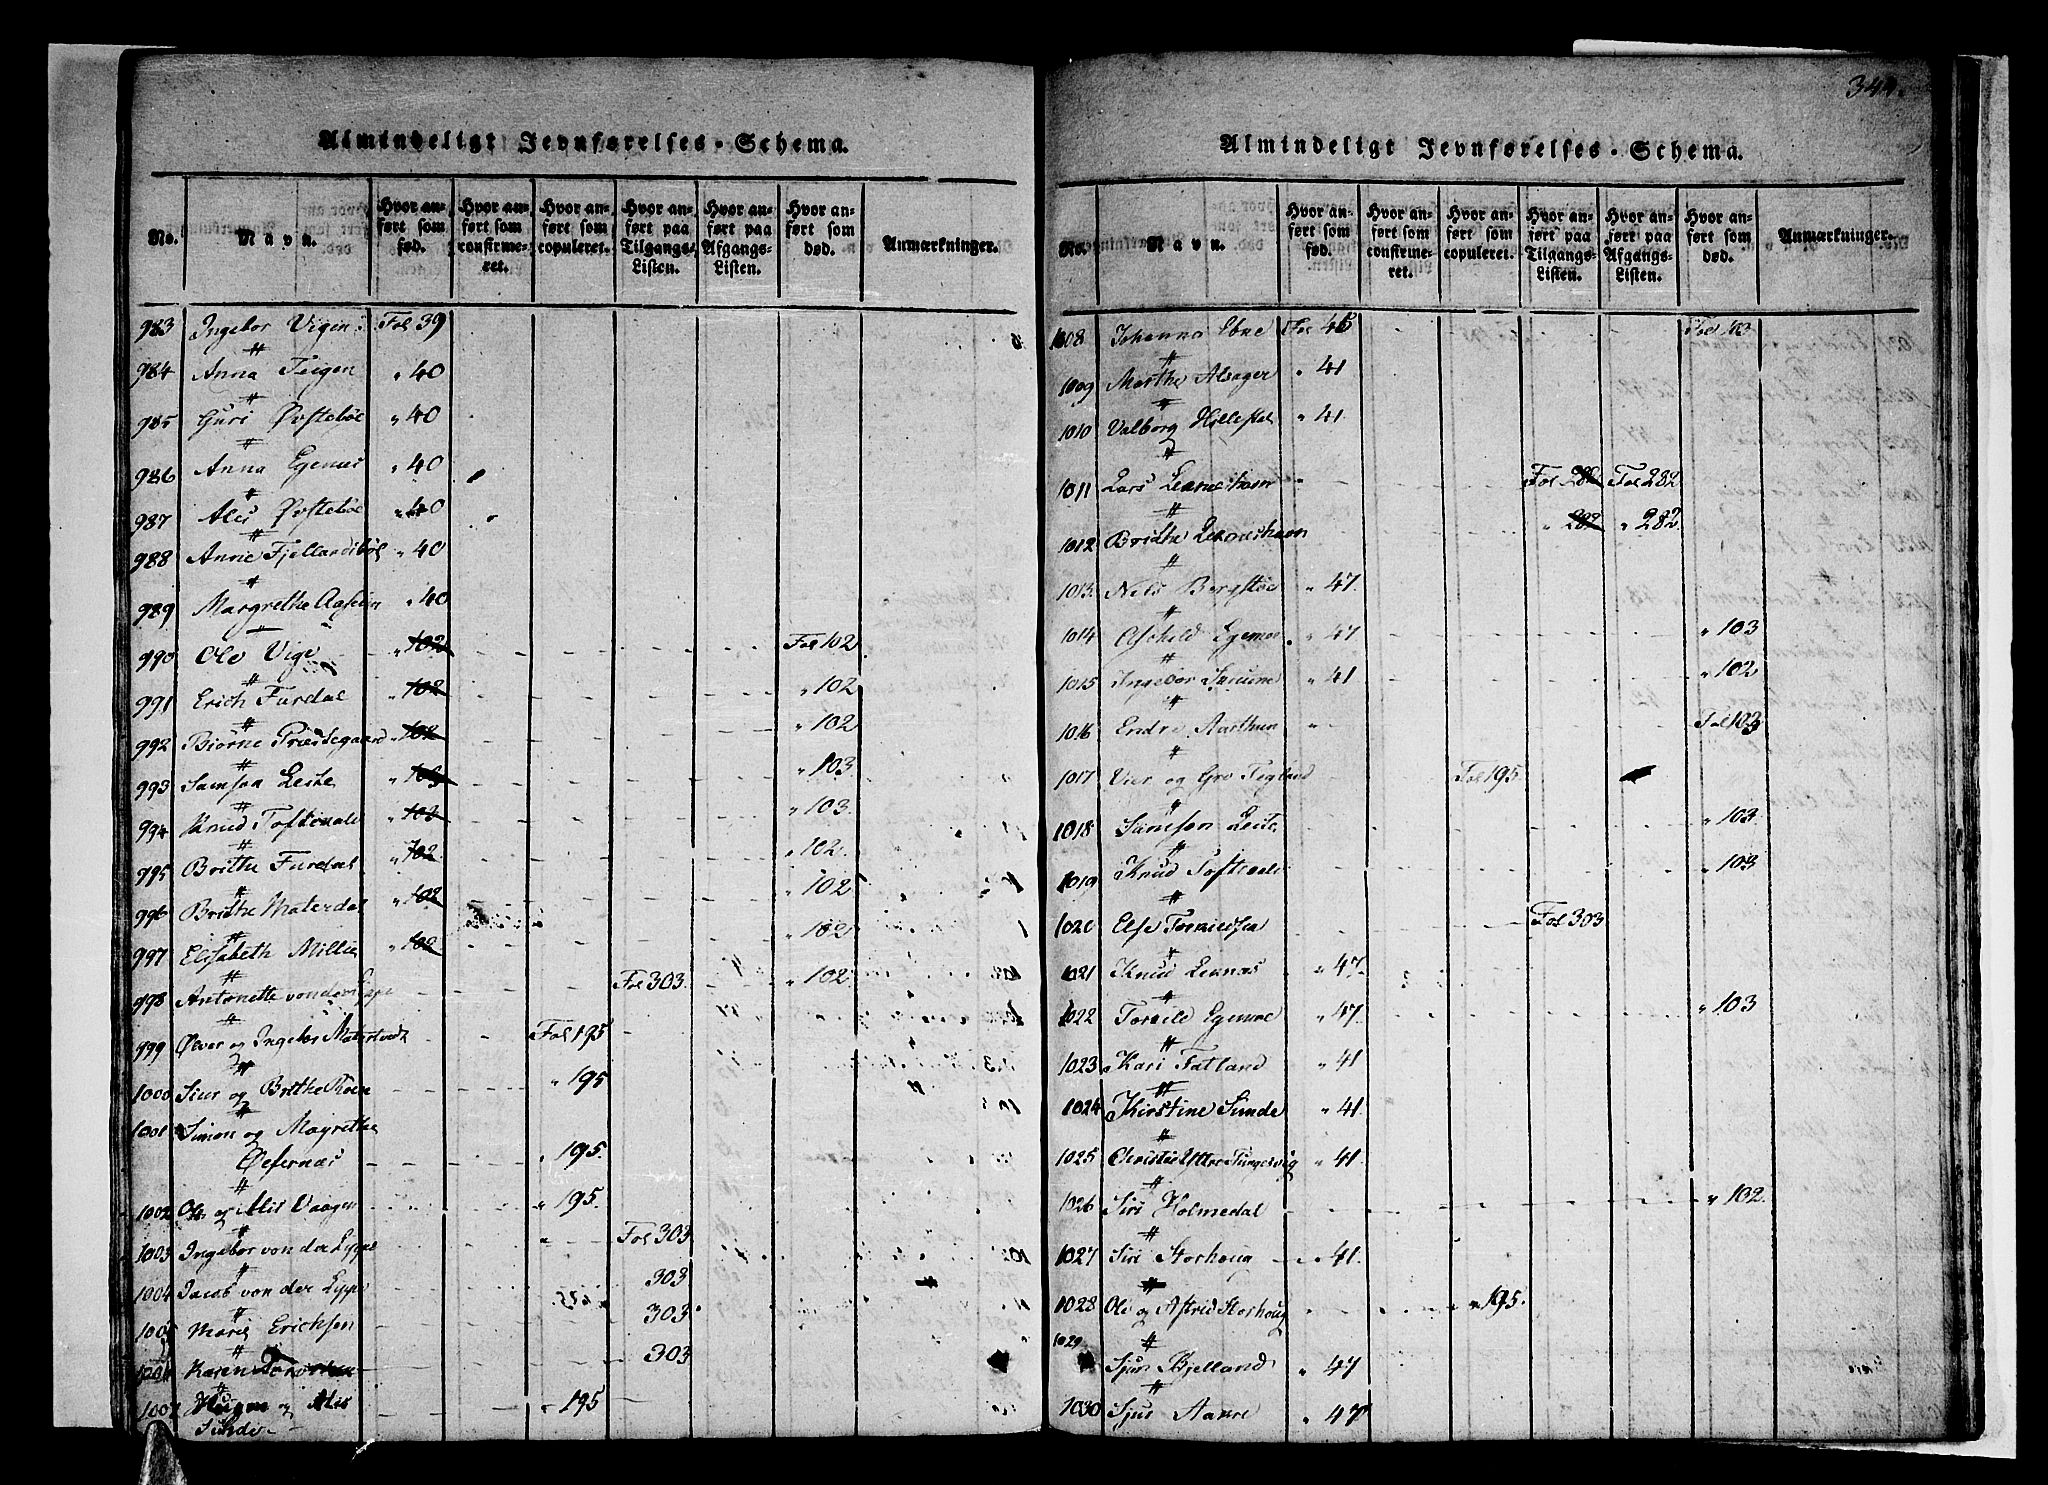 344.
Almindeligt Jevnførelses-Schema.
No. Navn. Hvor anført som fød. Hvor anført som confirmeret. Hvor anført som copuleret. Hvor anført paa Tilgangs-Listen. Hvor anført paa Afgangs-Listen. Hvor anført som død. Anmærkninger.
983 Ingebor Vigen Fol 39
984 Anna Teigen " 40
985 Guri Østebøe " 40
986 Anna Egenes " 40
987 Alis Østebøe " 40
988 Anne Fjellandsbøl " 40
989 Margrethe Aaseim " 40
990 Ole Vige " 102 Fol 102
991 Erich Furdal " 102 " 102
992 Biørne Præstegaard " 102 " 102
993 Samson Leite " 103 " 103
994 Knud Toftevale " 103 " 103
995 Brithe Furdal " 102 " 102
996 Brithe Materdal " 102 " 102
997 Elisabeth Millie " 102 " 102
998 Antonette von der Lippe Fol 303 " 102
999 Øver og Ingebor Fol 195
1000 Siur og Brithe " 195
1001 Simon og Magrethe
Øefernæs " 195.
1002 Ole og Alis Vaagen " 195.
1003 Ingebor von der Lippe Fol 303
1004 Jacob von der Lippe 303
1005 Maris Erichsen 303
Karen 303
1007 og Alis " 195
Sunde
Almindeligt Jevnførelses-Schema.
No. Navn. Hvor anført som fød. Hvor anført som confirmeret. Hvor anført som copuleret. Hvor anført paa Tilgangs-Listen. Hvor anført paa Afgangs-Listen. Hvor anført som død. Anmærkninger.
1008 Johanna Ebne Fol
1009 Marthe Alsager " 41
1010 Valborg Hillestad " 41.
1011 Lars Fol 282 Fol 282
1012 Brithe " 282 " 282.
1013 Nils Bergstøe " 47.
1014 Asheld Egemoe " 47 " 103
1015 Ingebor " 41 " 102
1016 Endre Aarthun " Fol 103
1017 Vier og Gro Tegland Fol 195.
1018 Samson Leite " 103.
1019 Knud Toftevale " 103
1020 Else Fol 303
1021 Knud Leknes " 47.
1022 Torkild Egemoe " 47. " 103
1023 Kari Fatland " 41
1024 Kirstine Sunde " 41.
1025 Christie Yttre Tungesvig " 41.
1026 Siri Holmedal " 102.
1027 Siri Storhoug " 41.
1028 Ole og Astrid Storhoug " 195.
1029 Sjur Bjelland " 47
1030 Sjur Aakre " 47